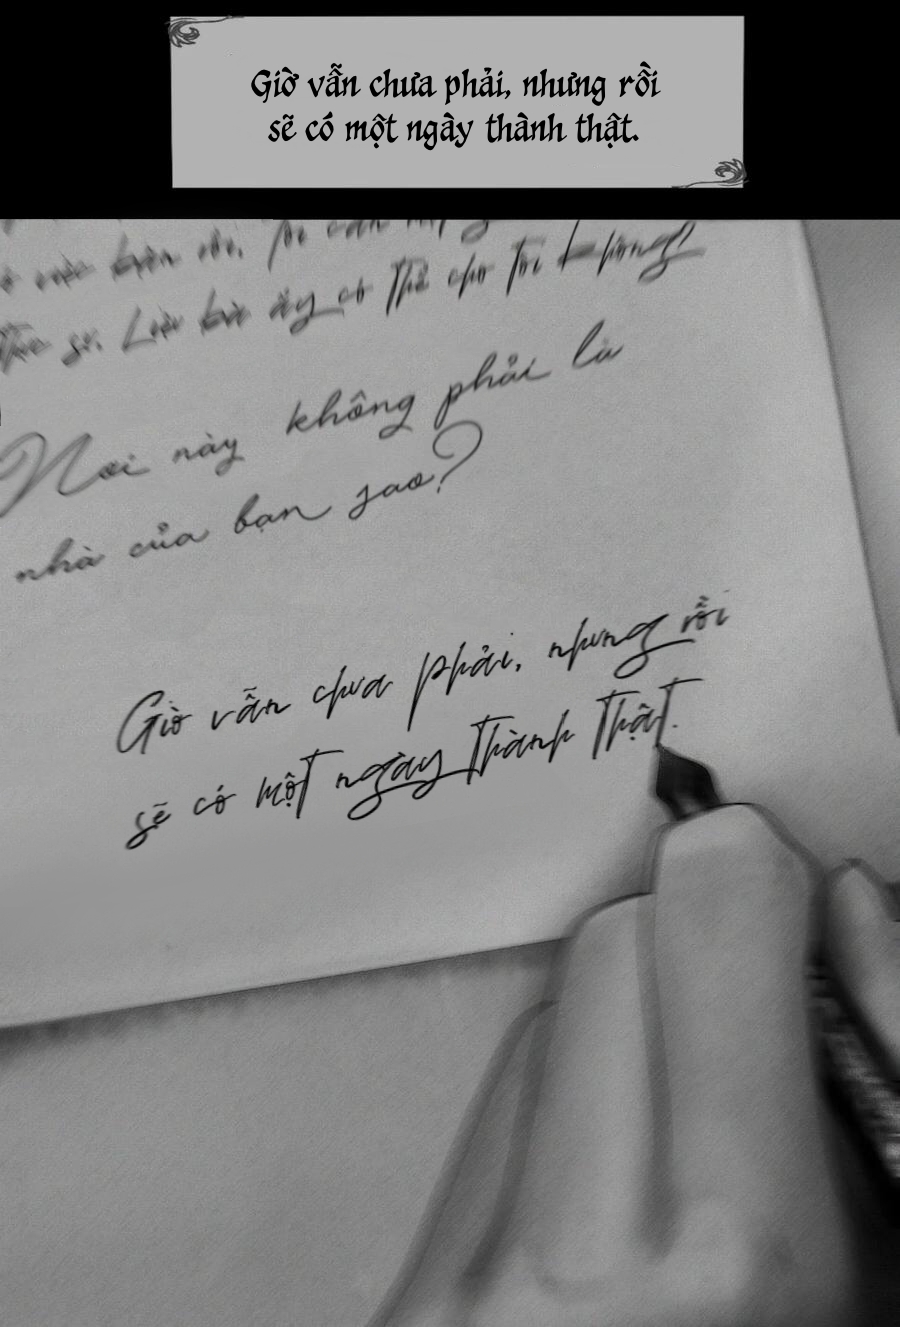 Giờ vẫn chưa phải, nhưng rồi
sẽ có một ngày thành thật.
ấy có thể cho tôi không?
Nơi này không phải là
nhà của bạn sao?
Giờ vẫn chưa phải, nhưng rồi
sẽ có một ngày thành thật.